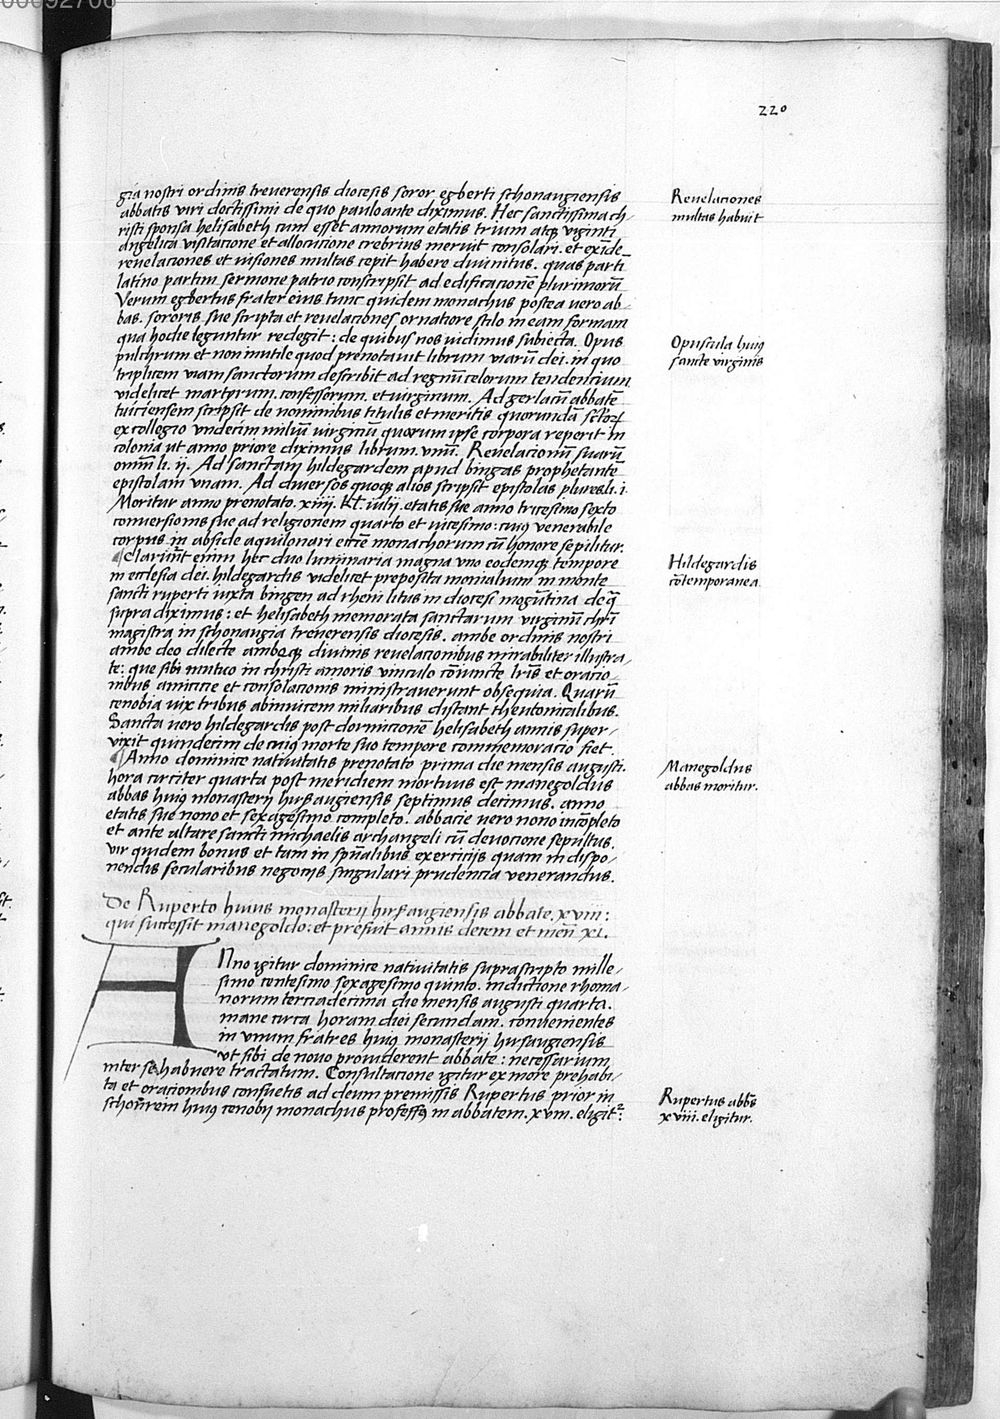 220
gia nostri ordinis treuerensis diocesis soror egberti schonaugiensis
abbatis viri doctissimi de quo pauloante diximus. Hec sanctissima ch-
risti sponsa helisabeth cum esset annorum etatis trium atqꝫ viginti
angelica visitacione et allocucione crebrius meruit consolari. et exīde
reuelaciones et visiones multas cepit habere diuinitus. quas parti
latino partim sermone patrio conscripsit ad edificacionē plurimorū
Verum egbertus frater eius tunc quidem monachus postea uero ab-
bas. sororis sue scripta et reuelaciones ornatiore stilo in eam formam
qua hodie leguntur redegit: de quibus nos uidimus subiecta. Opus
pulchrum et non inutile quod prenotauit librum uiarū dei. in quo
triplicem uiam sanctorum describit ad regnū celorum tendencium
videlicet martyrum. confessorum. et uirginum. Ad gerlacū abbatē
tuiciensem scripsit de nominibus titulis et meritis quorundā sctōꝝ
ex collegio vndecim miliū virginū quorum ipse corpora reperit in
colonia ut anno priore diximus librum. vnū. Reuelacionū suarū
omniū li. ij. Ad sanctam hildegardem apud bingas prophetantē
epistolam vnam. Ad diuersos quoqꝫ alios scripsit epistolas plures li. i.
Moritur anno prenotato. xiiij. kl. iulij. etatis sue anno tricesimo sexto
conuersionis sue ad religionem quarto et uicesimo: cuiꝯ venerabile
corpus in abside aquilonari eccē monachorum cū honore sepilitur.
Claruerūt enim hec duo luminaria magna vno eodemqꝫ tempore
in ecclesia dei. hildegardis videlicet preposita monialium in monte
sancti ruperti iuxta bingen ad rheni litus in diocesi mogūtina de q̄
supra diximus: et helisabeth memorata sanctarum virginū chrī
magistra in schonaugia treuerensis diocesis. ambe ordinis nostri
ambe deo dilecte ambeqꝫ diuinis reuelacionibus mirabiliter illustra-
te: que sibi mutuo in christi amoris vinculo cōiuncte lrīs et oracio-
nibus amicicie et consolacionis ministrauerunt obsequia. Quarū
cenobia uix tribus abinuicem miliaribus distant theutonicalibus.
Sancta uero hildegardis post dormicionē helisabeth annis super-
vixit quindecim de cuiꝯ morte suo tempore commemoracio fiet.
Anno dominice natiuitatis prenotato prima die mensis augusti.
hora circiter quarta post meridiem mortuus est manegoldus
abbas huiꝯ monasterij hirsaugiensis septimus decimus. anno
etatis sue nono et sexagesimo completo. abbacie uero nono incōpleto
et ante altare sancti michaelis archangeli cū deuocione sepultus.
vir quidem bonus et tam in spūalibus exercicijs quam in dispo-
nendis secularibus negocijs singulari prudencia venerandus.
De Ruperto huius monasterij hirsaugiensis abbate. xviij:
qui successit manegoldo: et prefuit annis decem et mēn xi.
ANno igitur dominice natiuitatis suprascripto mille-
simo centesimo sexagesimo quinto. indictione rhoma-
norum terciadecima die mensis augusti quarta.
mane circa horam diei secundam. conuenientes
in vnum fratres huiꝯ monasterij hirsaugiensis
vt sibi de nouo prouiderent abbate: necessarium
inter se habuere tractatum. Consultacione igitur ex more prehabi-
ta et oracionibus consuetis ad deum premissis Rupertus prior in
schōnrein huiꝯ cenobij monachus professꝯ in abbatem. xviij. eligitr:
Reuelaciones
multas habuit
Opuscula huiꝯ
sancte virginis
Hildegardis
cōtemporanea
Manegoldus
abbas moritur.
Rupertus abbs
xviii. eligitur.